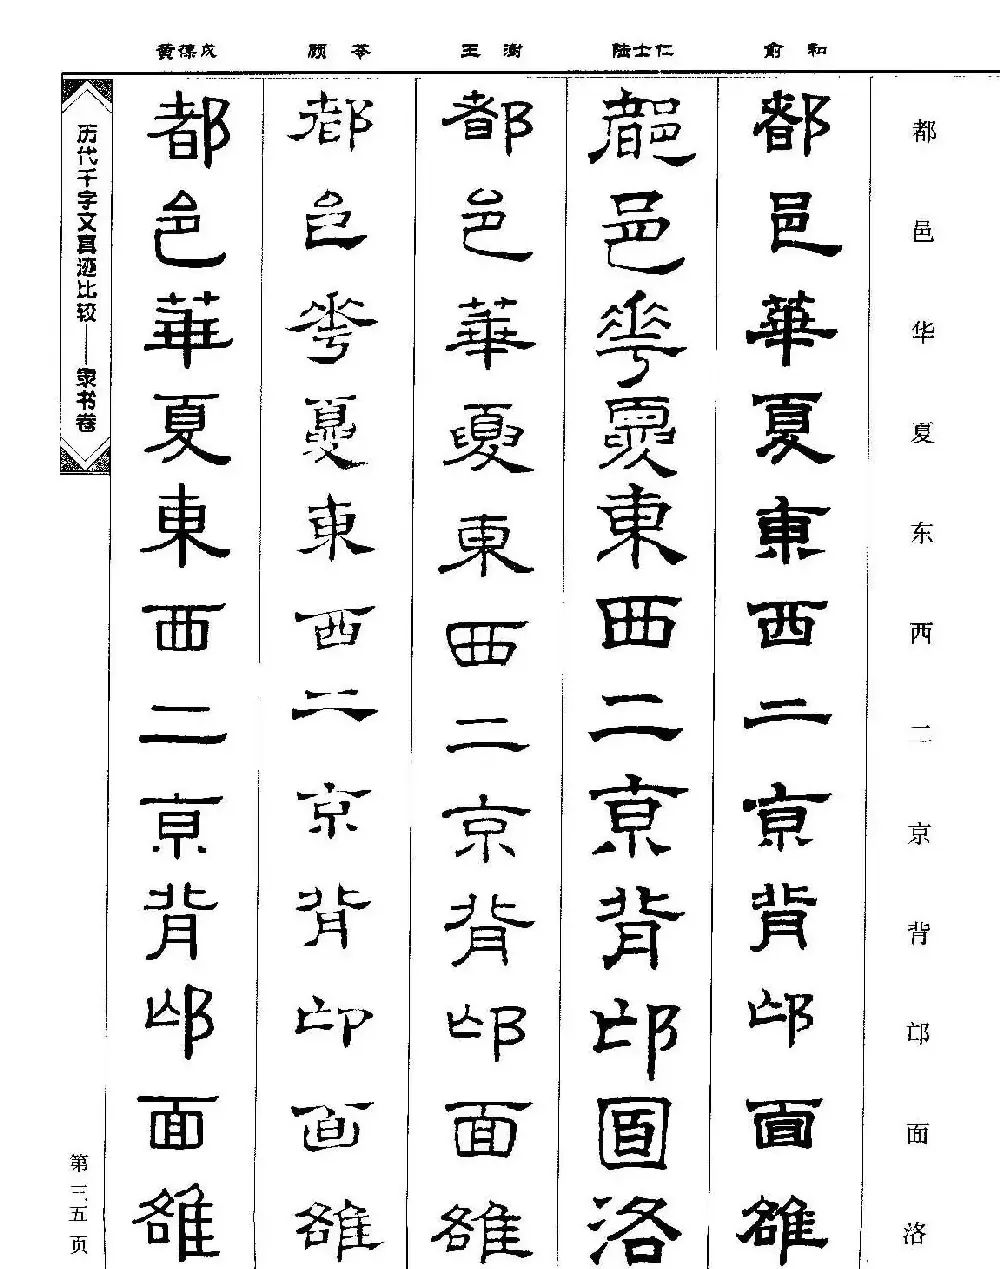 都邑华夏东西二京背邙面洛
俞和
都邑華夏東西二京背邙面雒
陆士仁
都邑華夏東西二京背邙面洛
王澍
都邑華夏東西二京背邙面雒
顾苓
都邑華夏東西二京背邙面雒
黄葆戉
都邑華夏東西二京背邙面雒
历代千字文真迹比较——隶书卷
第三五页